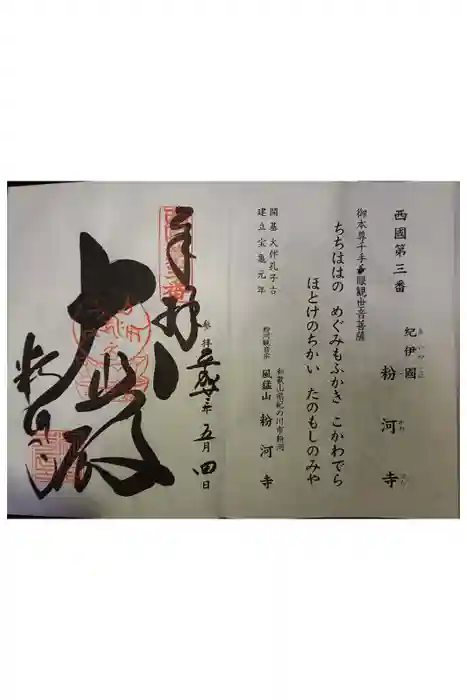 西國第三番
紀伊國 粉河寺
御本尊千手千眼観世音菩薩
ちちははの めぐみもふかき こかわでら
ほとけのちかい たのもしのみや
開基 大伴孔子古
建立 宝亀元年
和歌山県紀の川市粉河
粉河観音宗 風猛山 粉河寺
奉拝
参拝 平成廿三年 五月 四日
大悲殿
粉河寺